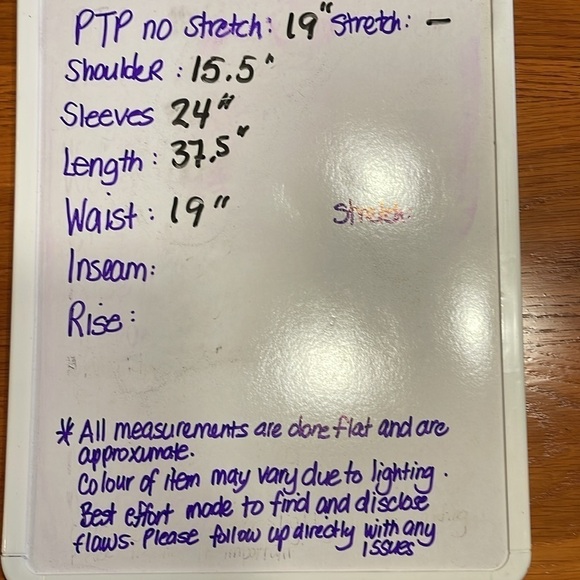 PTP no Stretch: 19" Stretch: -
Shoulder: 15.5"
Sleeves 24"
Length: 37.5"
Waist: 19" Stretch:
Inseam:
Rise:
* All measurements are done flat and are
approximate.
Colour of item may vary due to lighting.
Best effort made to find and disclose
flaws. Please follow up directly with any
issues